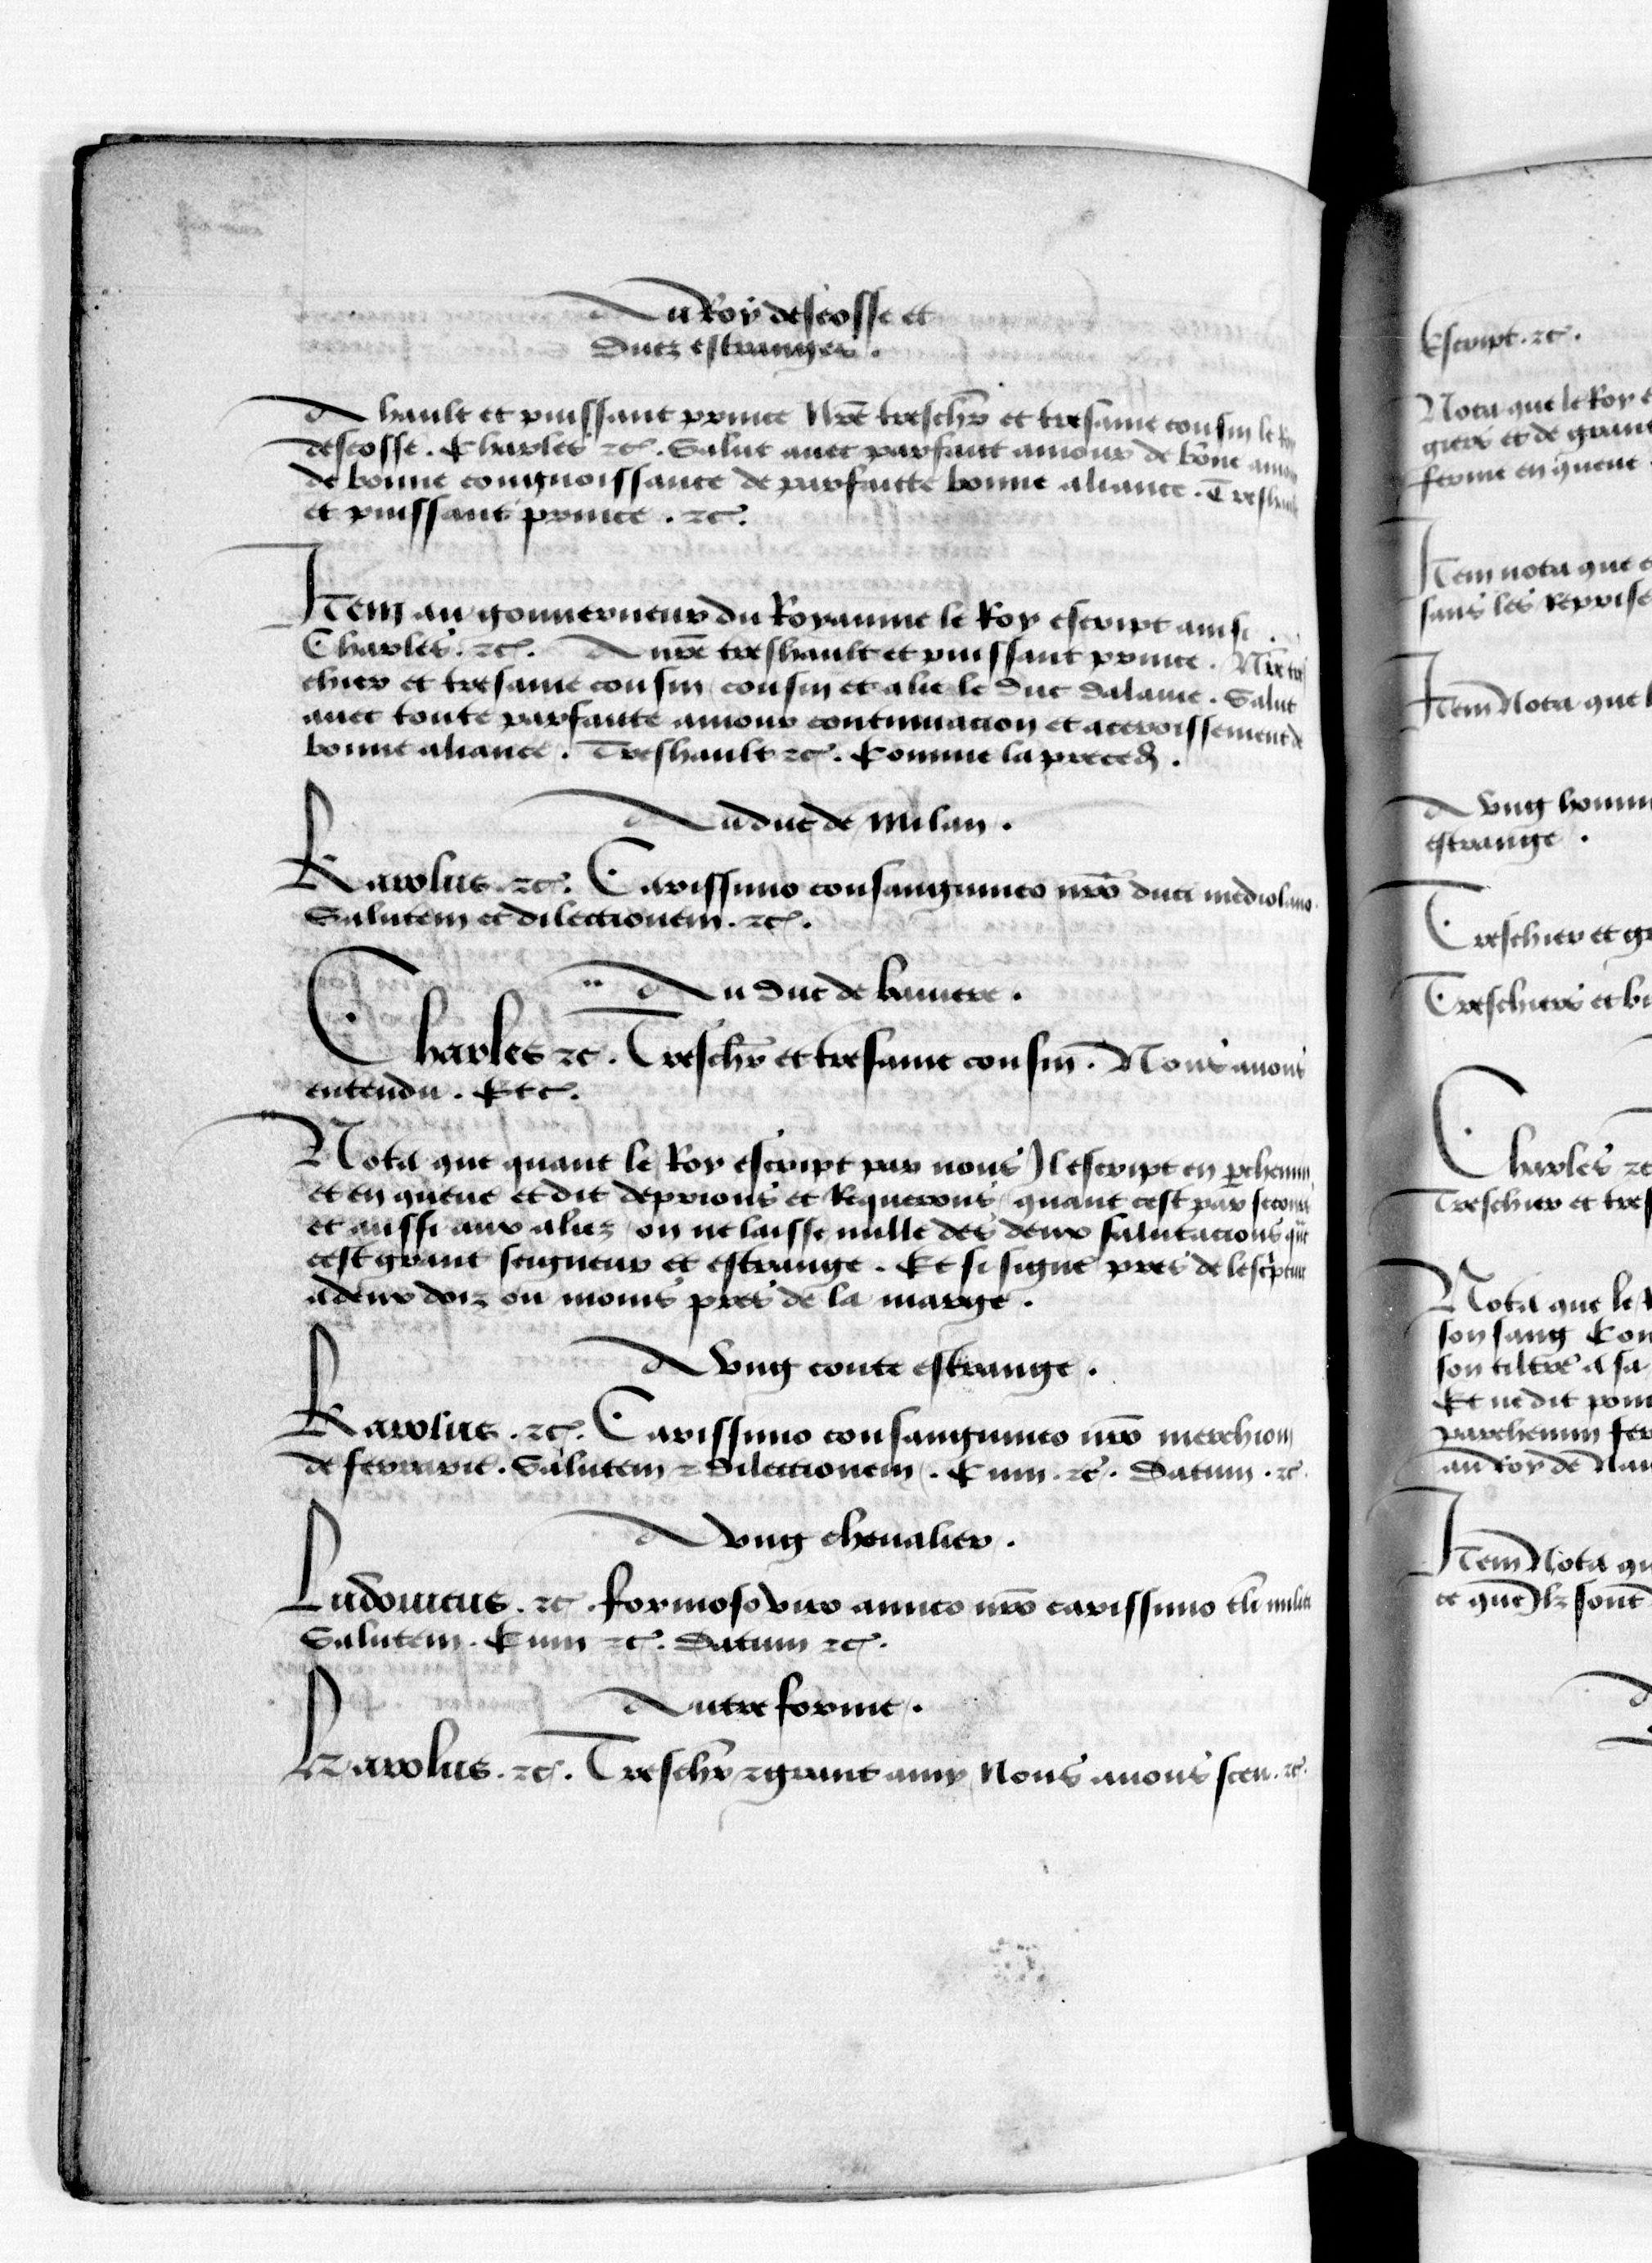 Au Roy descosse et
Ducz estranges.
A hault et puissant prince Nrē treschr̄ et tresame cousin le Roy
descosse. Charles ⁊c̄. Salut auec parfaict amour de bōne amour
de bonne congnoissance de parfaicte bonne aliance. Treshault
et puissant prince. ⁊c̄.
Item au gouuerneur du Royaume le Roy escript ainsi.
Charles. ⁊c̄. A nrē treshault et puissant prince. Nrē tres
chier et tresame cousin cousin et alie le Duc dalanie. Salut
auec toute parfaitte amour continuacion et accroissement de
bonne aliance. Treshault ⁊c̄. Comme la preced̄.
Au duc de Milan.
Karolus. ⁊c̄. Carissimo consanguineo nrō duci mediolano.
Salutem et dilectionem. ⁊c̄.
Au Duc de bauiere.
Charles ⁊c. Treschr̄ et tresame cousin. Nous auons
entendu. Etc.
Nota que quant le Roy escript par nous Il escript en p̱chemin
et en queue et dit deprions et Requerons quant cest par
et aussi aux aliez on ne laisse nulle des deux salutacions qūt
cest grant seigneur et estrange. Et si signe pres de lesc̄pture
adeux doiz ou moins pres de la marge.
A Vng conte estrange.
Karolus. ⁊c̄. Carissimo consanguineo nrō merchion
de ferrarie. Salutem ⁊ Dilectionem. Cum. ⁊c̄. Datum. ⁊c̄.
A vng cheualier.
Ludouicus. ⁊c̄. formoso viro amico nrō carissimo tli militi
Salutem. Cum ⁊c̄. Datum ⁊c̄.
Autre forme.
Karolus. ⁊c̄. Treschr̄ ⁊ grant amy Nous auons sceu. ⁊c̄.
Escript. ⁊c̄.
Nota que le Roy e
giers et de grant
ferme en queue
Item nota que e
sans les Reprise
Item Nota que l
A vng homm
estrange.
Treschier et gr
Treschiers et bi
Charles ⁊c
Treschier et tres
Nota que le R
son sang Com
son tiltre A sa
Et ne dit poin
parchemin fer
au Roy de Nau
Item Nota qu
ce quē Ilz sont